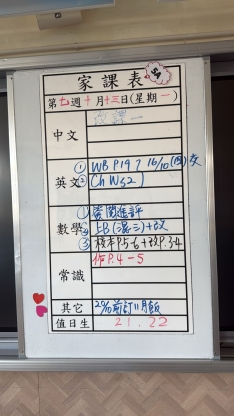 家課表
第七週十月十三日(星期一)
中文
英文
① WB P19 7 16/10(四)交
② (Ch Ws2)
數學
①
② 上B(混二)+改
③ 校本P.5-6+改P.3-4
常識
作P.4-5
其它
29/10前訂11月飯
值日生
21.22